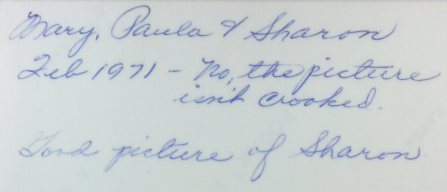 Mary, Paula & Sharon
Feb 1971 - No, the picture
isn't crooked.
Good picture of Sharon